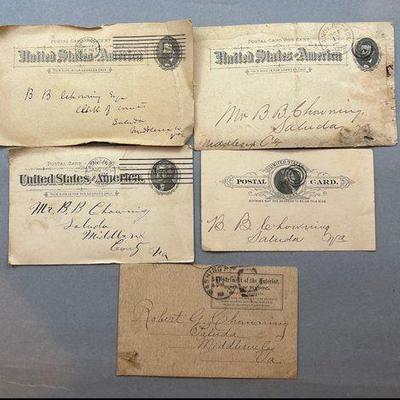 POSTAL CARD ONE CENT
United States of America
THIS SIDE IS FOR ADDRESS ONLY
B B Chowning Esq
Clerk of
Saluda
Co
POSTAL CARD ONE CENT
United States of America
THIS SIDE IS FOR ADDRESS ONLY
Mr B. B. Chowning
Saluda
Middlesex Co
POSTAL CARD ONE CENT
United States of America.
THIS SIDE IS FOR ADDRESS ONLY
Mr. B. B. Chowning
Saluda
Middlesex
County Va
UNITED STATES
POSTAL CARD.
NOTHING BUT THE ADDRESS TO BE ON THIS SIDE
B B Chowning
Saluda Va
WASHINGTON
Department of the Interior,
Robert G Chowning
Saluda
Middlesex Co
Va